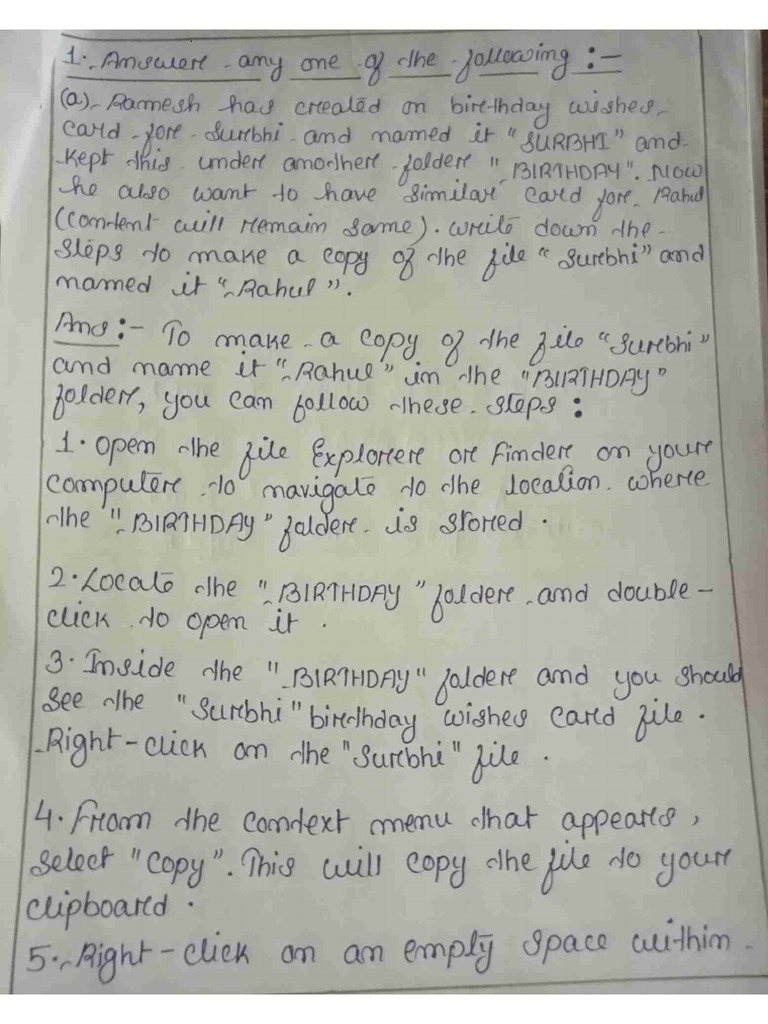 1. Answer any one of the following :-
(a) Ramesh has created on birthday wishes
card for Surbhi and named it "SURBHI" and
kept this under another folder "BIRTHDAY". Now
he also want to have similar card for Rahul
(content will remain same). write down the
steps to make a copy of the file "Surbhi" and
named it "Rahul".
Ans :- To make a copy of the file "Surbhi"
and name it "Rahul" in the "BIRTHDAY"
folder, you can follow these steps :
1. Open the file Explorer or Finder on your
computer to navigate to the location where
the "BIRTHDAY" folder is stored.
2. Locate the "BIRTHDAY" folder and double-
click to open it.
3. Inside the "BIRTHDAY" folder and you should
see the "Surbhi" birthday wishes card file.
Right-click on the "Surbhi" file.
4. From the context menu that appears,
select "Copy". This will copy the file to your
clipboard.
5. Right-click on an empty space within